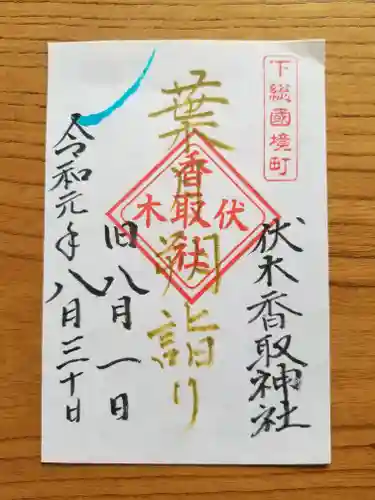 下総國境町
伏木香取神社
葉月朔詣り
香取社
伏木
旧八月一日
令和元年八月三十日